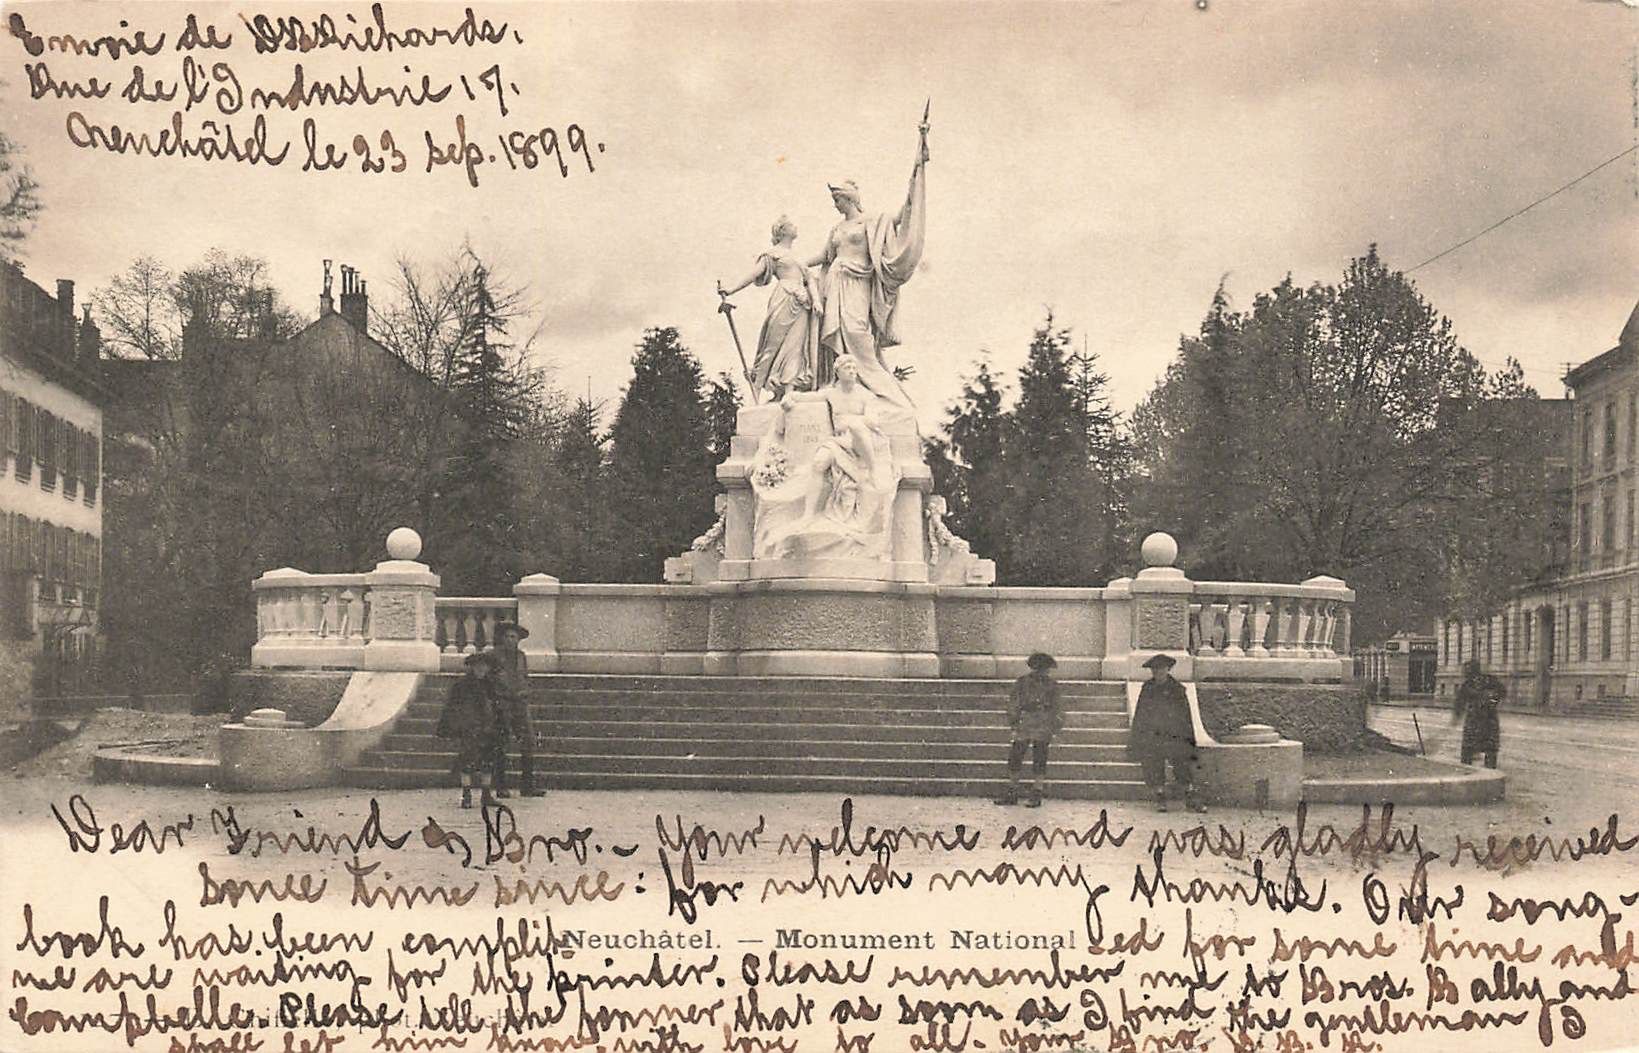 Envoie de D B Richards.
Rue de l'Industrie 17.
Neuchâtel le 23 sep. 1899.
MARS
1848
Dear Friend & Bro. - Your welcome card was gladly received
some time since: for which many thanks. Our song-
book has been complit ed for some time and
Neuchâtel. — Monument National
we are waiting for the printer. Please remember me to Bros. Bally and
Campbelle. Please tell the former that as soon as I find the gentleman I
shall let him know. with love to all. Your Bro. D. B. R.